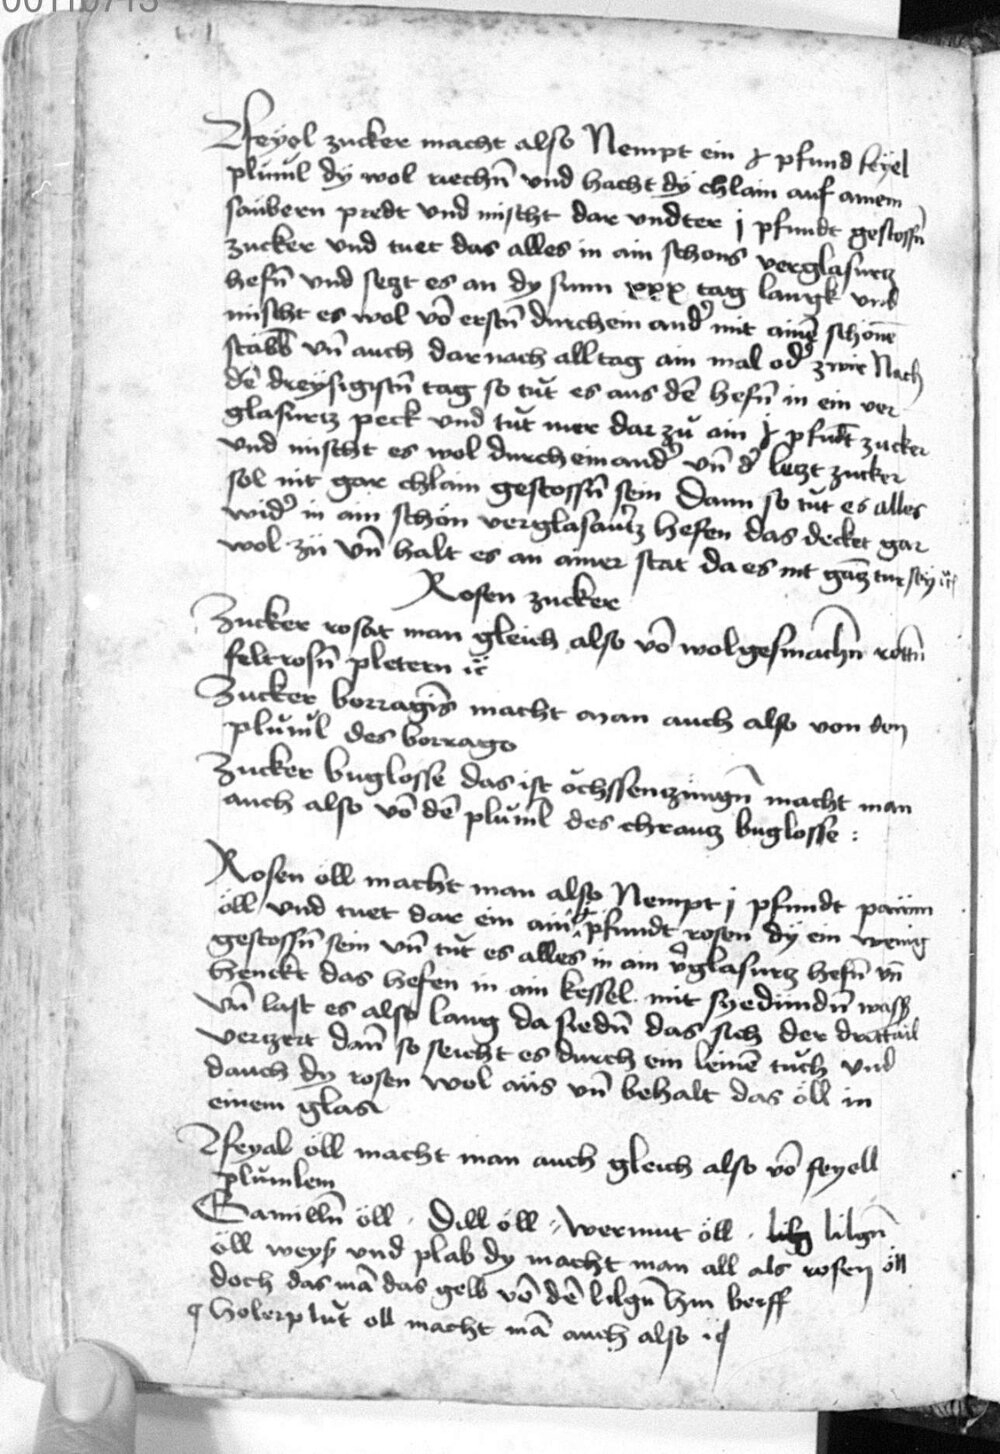 00110713
Feyol zucker macht also Nempt ein j pfund feyel
plüml dy wol riechn̄ vnd hacht dy chlain auf ainem
saubern predt vnd mischt dar vndter j pfundt gestossn̄
zucker vnd tuet das alles in ain schons verglasurtz
hefn̄ vnd setzt es an dy sunn xxx tag langk vnd
mischt es wol vō erstn̄ durch ein and᾽ mit ainē schonē
stabb vn̄ auch dar nach all tag ain mal od᾽ zwir Nach
dē dreysigistn̄ tag so tut es aus dē hefn̄ in ein ver
glasurtz peck vnd tut mer dar zu ain j pfūdt zucker
vnd mischt es wol durch ein and᾽ vn̄ d᾽ letzt zucker
sol nit gar chlain gestossn̄ sein Dann so tut es alles
wid᾽ in ain schon verglasautz hefen das decket gar
wol zu vn̄ halt es an ainer stat da es nit gātz tur sey
Rosen zucker
Zucker rosat man gleich also vō wolgesmachn̄ rottn̄
feltrosn̄ pletern
Zucker borragīs macht man auch also von den
plüml des borrago
Zucker buglosse das ist ochssenzungn̄ macht man
auch also vō dē plüml des chrautz buglosse :
Rosen öll macht man also Nempt j pfundt pawm
öll vnd tuet dar ein ain pfundt rosen dy ein wenig
gestossn̄ sein vn̄ tut es alles in ain v᾽glasurtz hefn̄ vn̄
henckt das hefen in ain kessel mit syedundn̄ wass᾽
vn̄ last es also lang da siedn̄ das sich der drittail
verzert dan̄ so seicht es durch ein leinē tuch vnd
dauch dy rosen wol aus vn̄ behalt das öll in
einem glas
Feyal öll macht man auch gleich also vō feyell
plümlem
Camilln̄ öll · Dill öll · wermut öll · lilgn̄
öll weyss vnd plab dy macht man all als rosen öll
doch das mā das gelb vō dē lilgn̄ hin berff
¶ Holerplut oll macht mā auch also